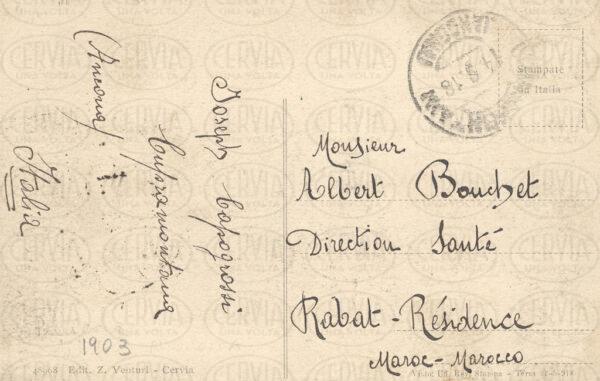 Joseph Capogrossi
Cupramontana
(Ancona)
Italia
1903
48968 Edit. Z. Venturi - Cervia
Stampate
in Italia
14.5.18
Monsieur
Albert Bouchet
Direction Santé
Rabat - Résidence
Maroc - Marocco
CERVIA
UNA VOLTA